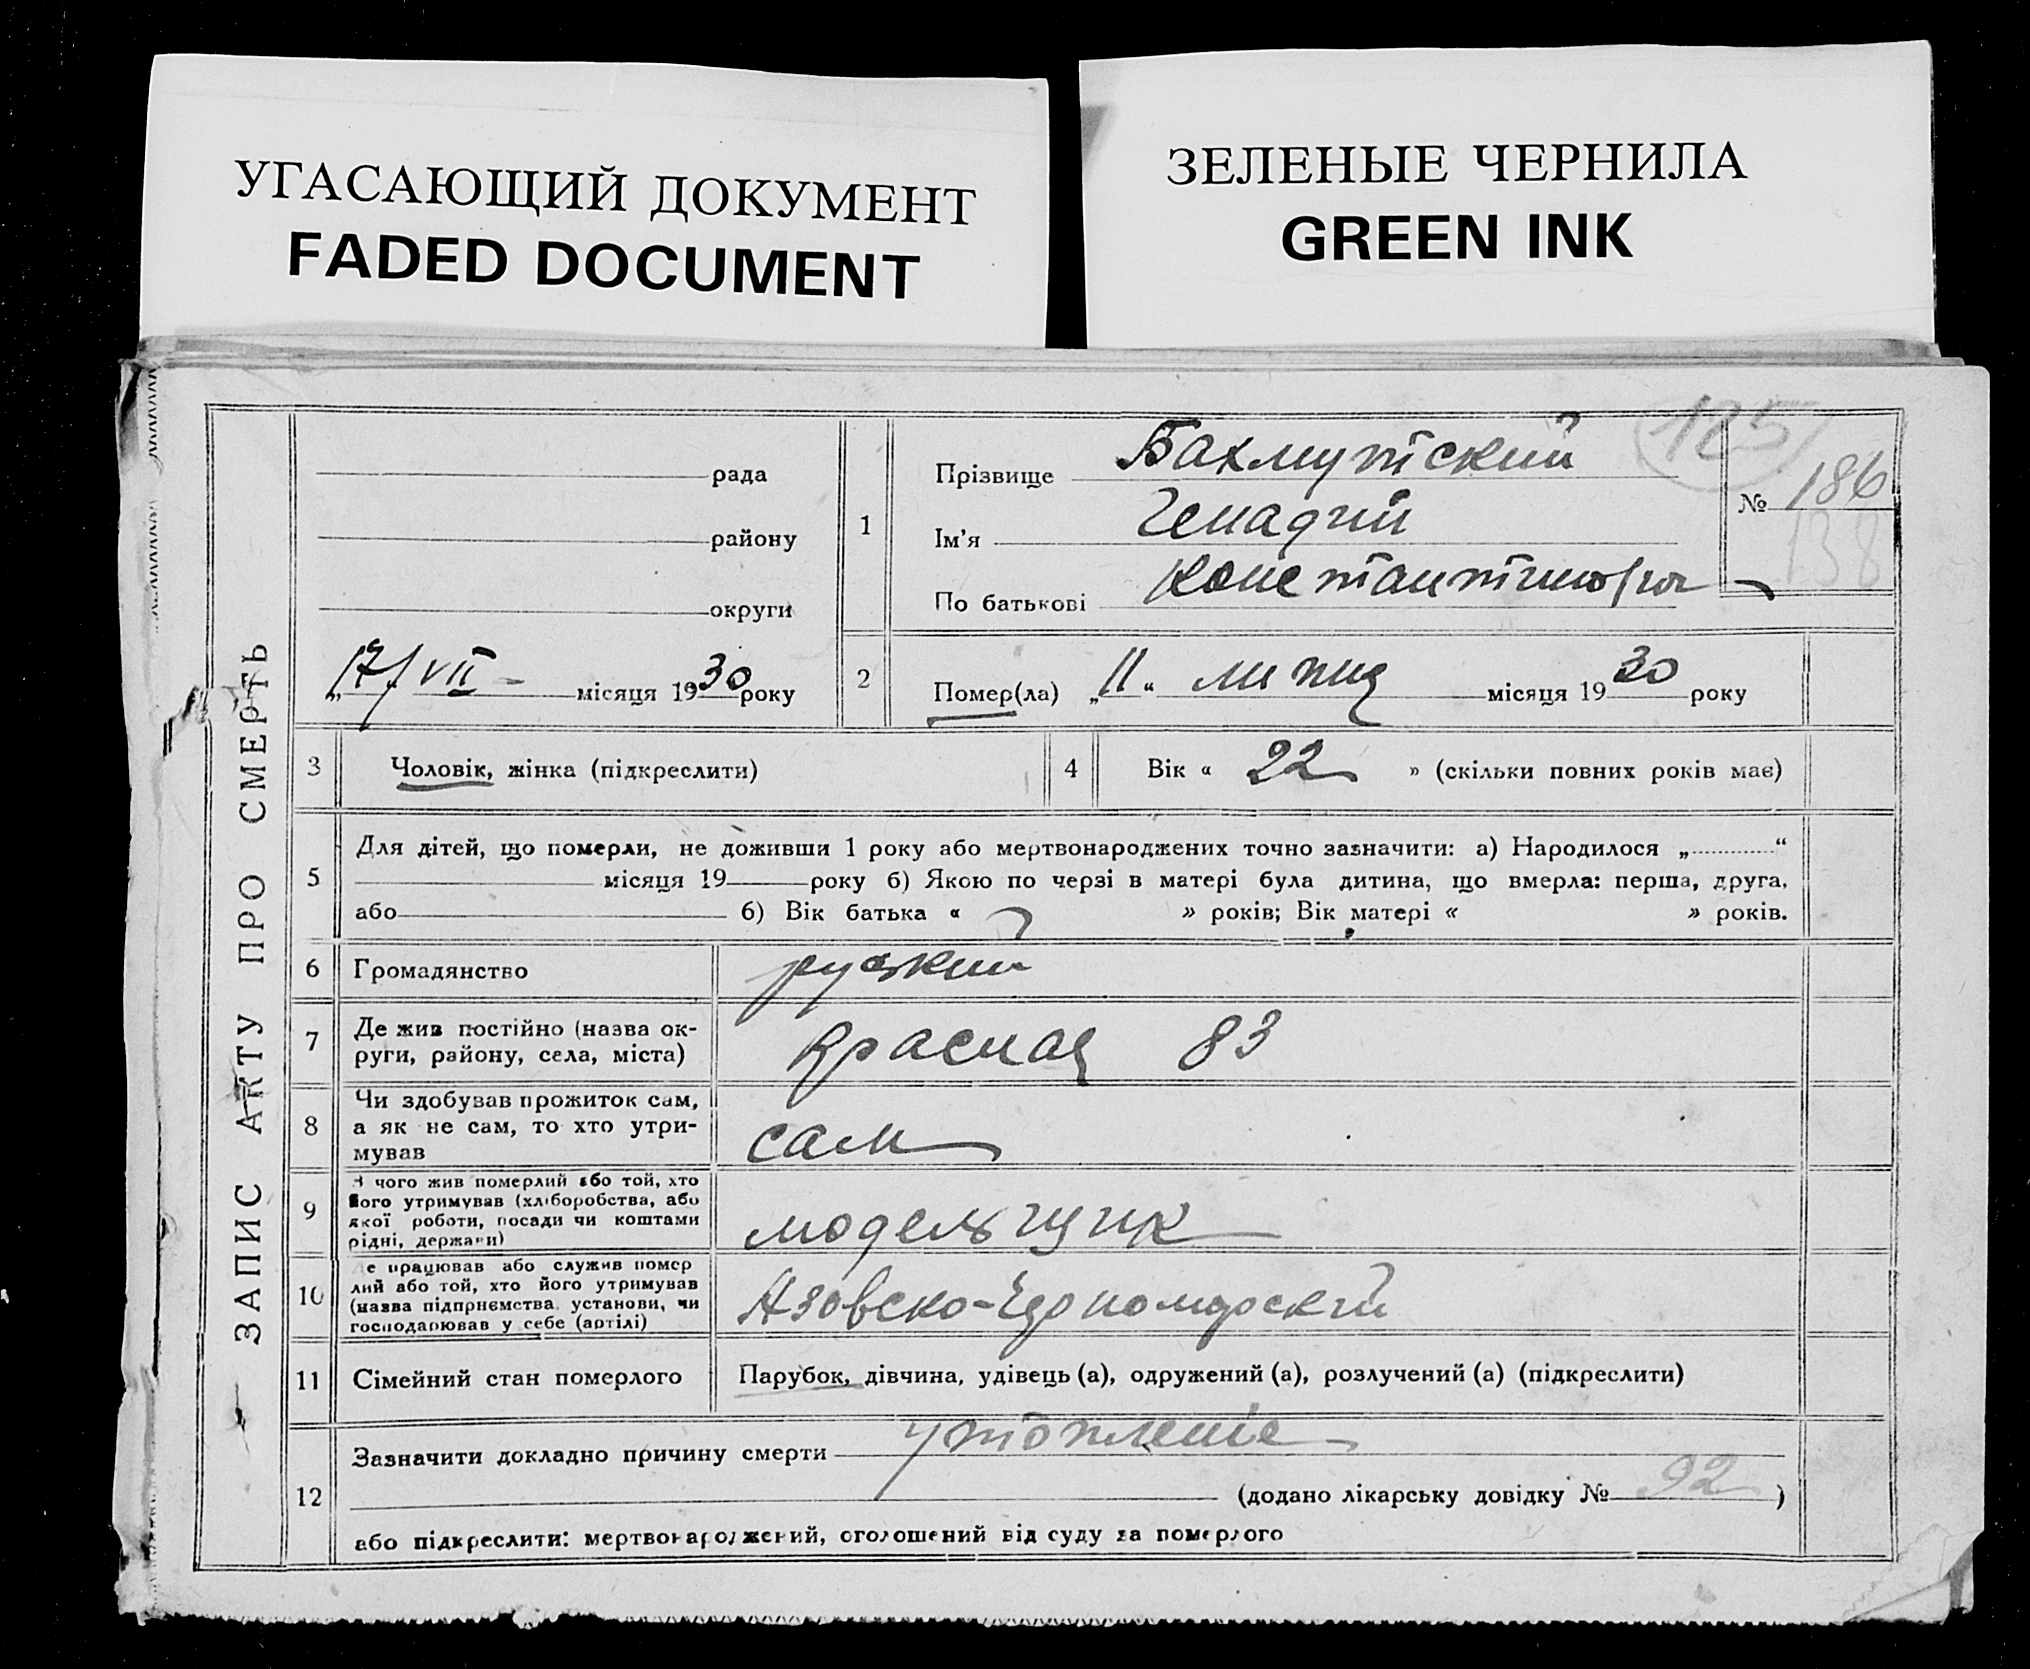 УГАСАЮЩИЙ ДОКУМЕНТ
FADED DOCUMENT
ЗЕЛЕНЫЕ ЧЕРНИЛА
GREEN INK
ЗАПИС АКТУ ПРО СМЕРТЬ
рада
району
округи
17/VII - місяця 1930 року
125
№ 186
138
1
Прізвище Бахмутский
Ім'я Генадий
По батькові
2
Помер(ла) „11“ липня місяця 1930 року
3 Чоловік, жінка (підкреслити)
4 Вік « 22 » (скільки повних років має)
5
Для дітей, що померли, не доживши 1 року або мертвонароджених точно зазначити: а) Народилося „ “
місяця 19 року б) Якою по черзі в матері була дитина, що вмерла: перша, друга,
або б) Вік батька « » років; Вік матері « » років.
6 Громадянство руский
7 Де жив постійно (назва ок-
руги, району, села, міста)
Красная 83
8 Чи здобував прожиток сам,
а як не сам, то хто утри-
мував
сам
9 З чого жив померлий або той, хто
його утримував (хліборобства, або
якої роботи, посади чи коштами
рідні, держави)
модельщик
10 Де працював або служив помер
лий або той, хто його утримував
(назва підприємства, установи, чи
господарював у себе (артілі)
Азовско-Черноморский
11 Сімейний стан померлого Парубок, дівчина, удівець (а), одружений (а), розлучений (а) (підкреслити)
12
Зазначити докладно причину смерти утопление
(додано лікарську довідку № 92 )
або підкреслити: мертвонароджений, оголошений від суду за померлого